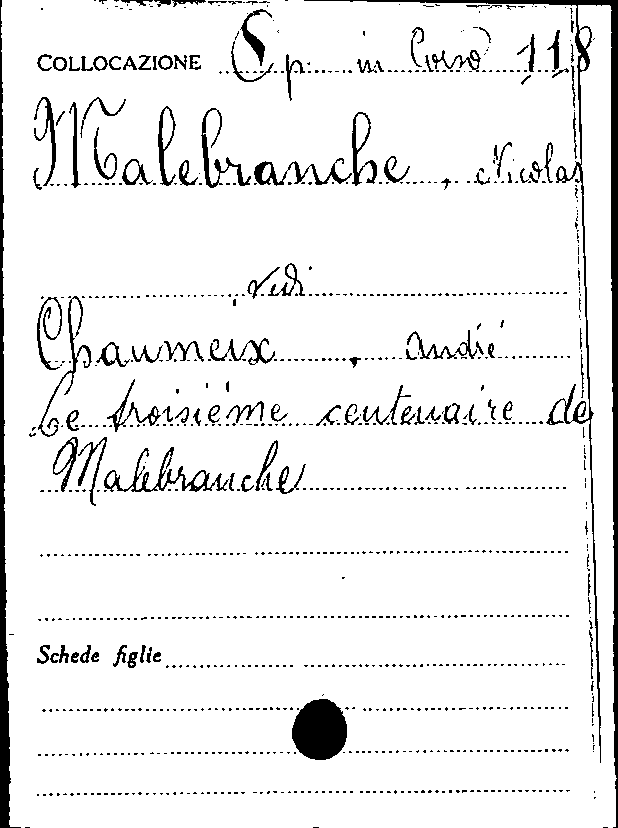 COLLOCAZIONE Op. in Corso 118
Malebranche, Nicolas
vedi
Chaumeix, André
Le troisième centenaire de
Malebranche
Schede figlie